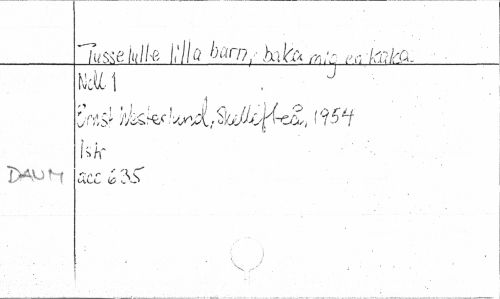 Tusselulle lilla barn, baka mig en kaka
Ndl 1
Ernst Westerlund, Skellefteå, 1954
1str
DAUM acc 635